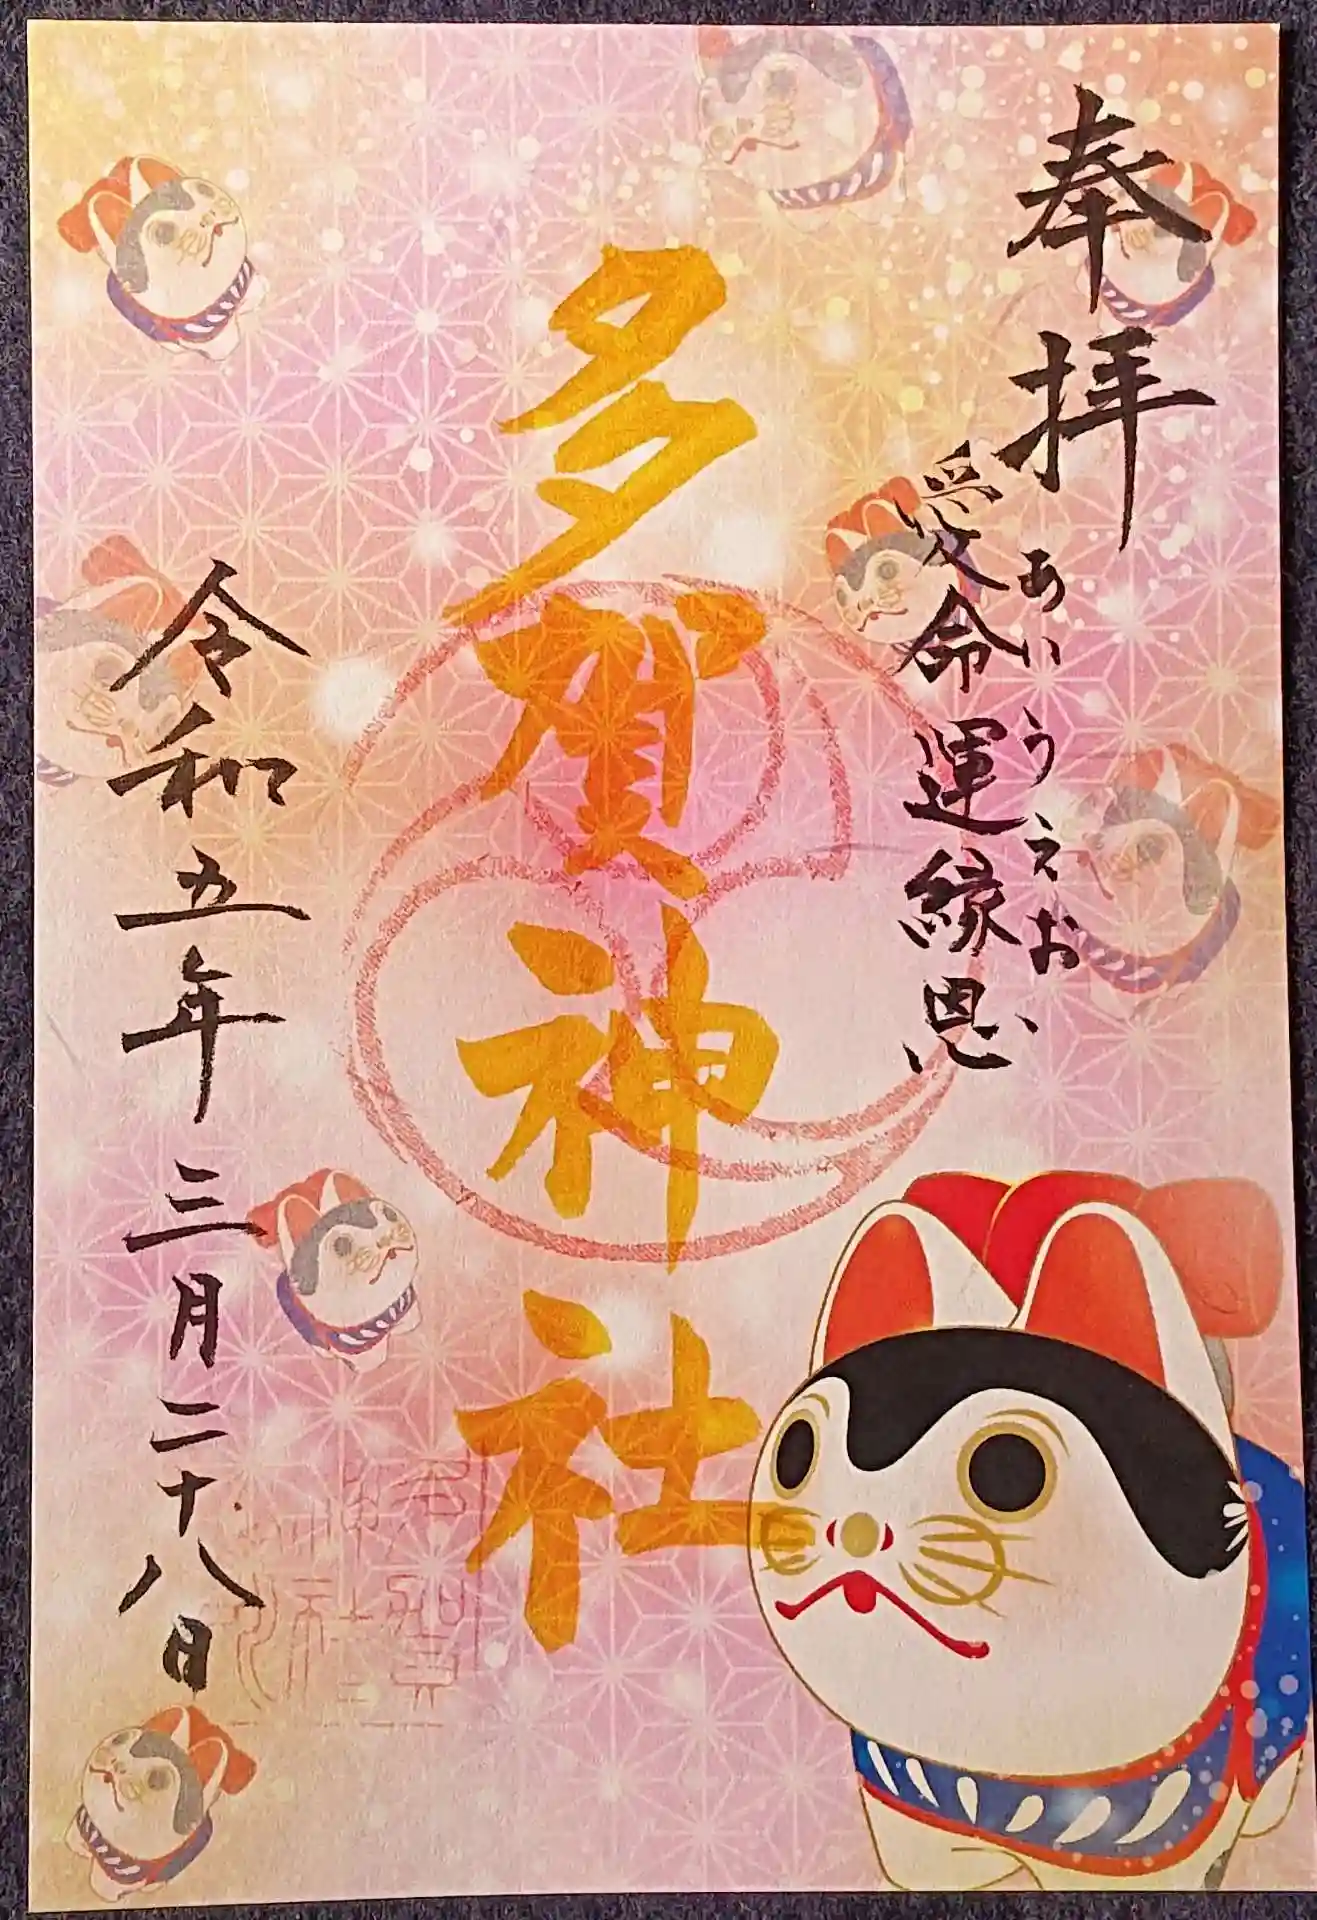 奉拝
あいうえお
愛命運縁恩
多賀神社
令和五年三月二十八日